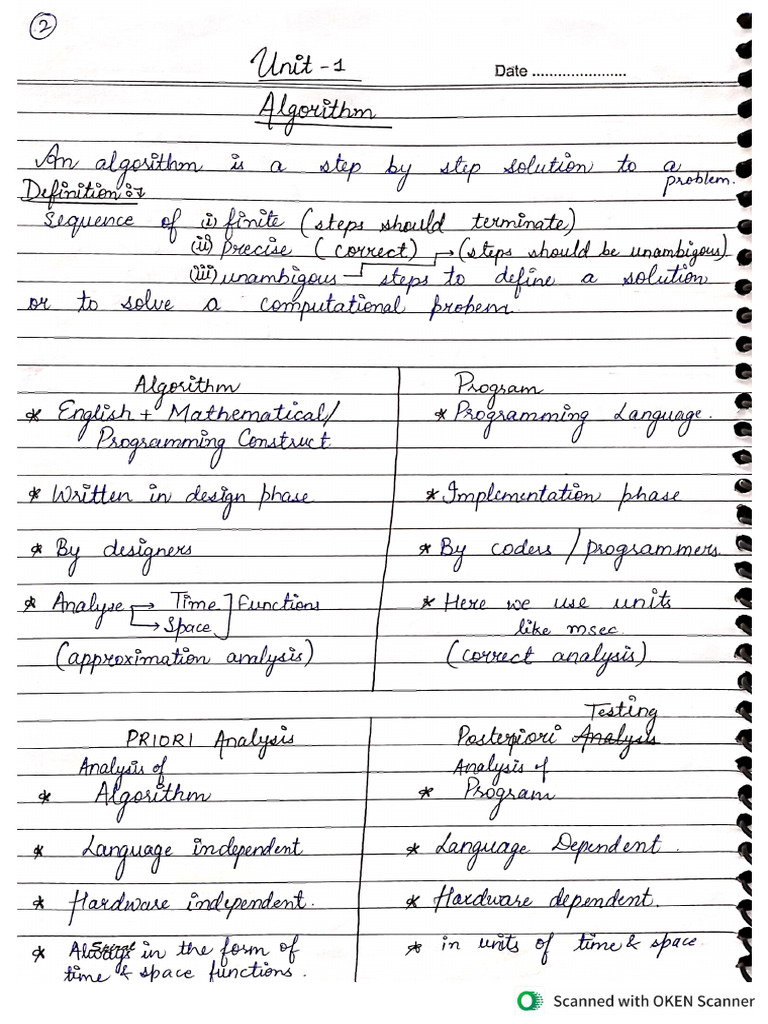 2
Unit - 1
Date ......................
Algorithm
An algorithm is a step by step solution to a problem.
Definition :-
Sequence of (i) finite (steps should terminate)
(ii) Precise (correct) → (steps should be unambigous)
(iii) unambigous steps to define a solution
or to solve a computational probem.
Algorithm | Program
* English + Mathematical/ | * Programming Language.
Programming Construct
* Written in design phase | * Implementation phase
* By designers | * By coders / programmers.
* Analyse → Time ] Functions | * Here we use units
→ Space | like msec.
(approximation analysis) | (correct analysis)
Testing
PRIORI Analysis | Posteriori Analysis
Analysis of | Analysis of
* Algorithm | * Program
* Language independent | * Language Dependent.
* Hardware independent. | * Hardware dependent.
* Always in the form of | * in units of time & space.
time & space functions.
Scanned with OKEN Scanner